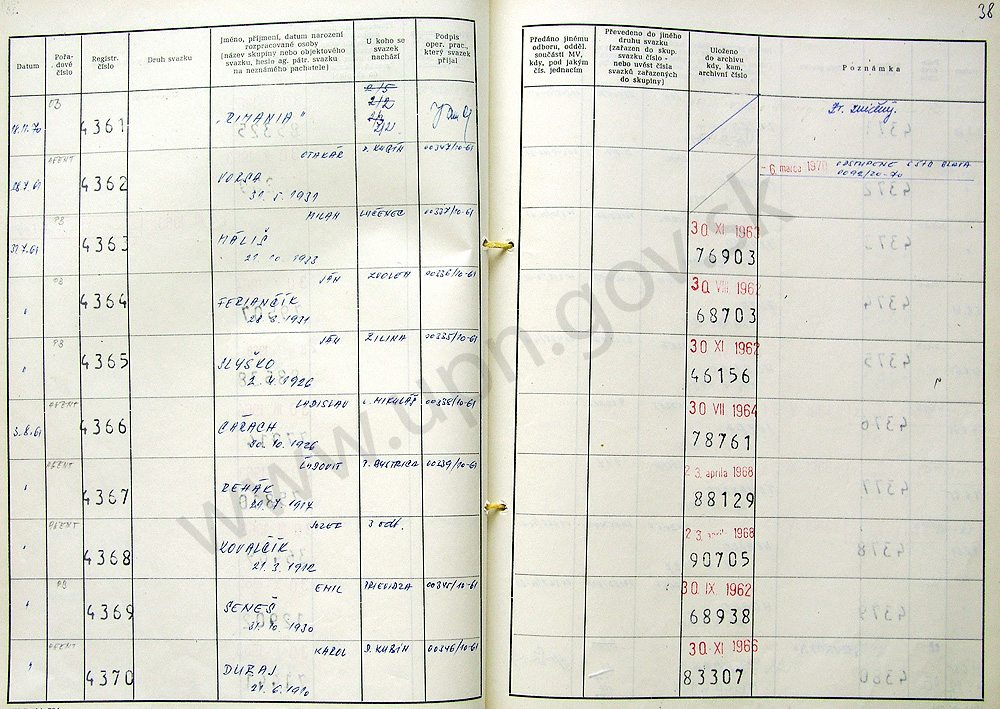 38
Datum
Pořa-
dové
číslo
Registr.
číslo
Druh svazku
Jméno, příjmení, datum narození
rozpracované osoby
(název skupiny nebo objektového
svazku, heslo ag. pátr. svazku
na neznámého pachatele)
U koho se
svazek
nachází
Podpis
oper. prac.,
který svazek
přijal
Předáno jinému
odboru, odděl.
součásti MV,
kdy, pod jakým
čís. jednacím
Převedeno do jiného
druhu svazku
(zařazen do skup.
svazku číslo -
nebo uvést čísla
svazků zařazených
do skupiny)
Uloženo
do archivu
kdy, kam,
archivní číslo
Poznámka
4361
„RIMANIA"
2/5
2/2
2/2
AGENT
4362
OTAKÁR
VORGA
31. 5. 1931
D. KUBÍN
00347/10-61
- 6. marca 1970
0092/20-70
PB
31.7.61
4363
MILAN
MÁLIŠ
21. 10. 1933
LUČENEC
00337/10-61
30 XI 1963
76903
PB
"
4364
JÁN
FERIANČÍK
28. 8. 1931
ZVOLEN
00336/10-61
30. VIII 1962
68703
PB
"
4365
JÁN
SLYŠKO
2. 4. 1926
ŽILINA
00335/10-61
30 XI 1962
46156
AGENT
3.8.61
4366
LADISLAV
CAŘACH
30. 10. 1926
L. MIKULÁŠ
00338/10-61
30 VII 1964
78761
AGENT
"
4367
ĽUDOVÍT
REHÁK
P. BYSTRICA
00339/10-61
2 3. apríla 1968
88129
AGENT
"
4368
JOZEF
KOVALČÍK
21. 3. 1912
3 odb.
2 3. apríla 1968
90705
PB
"
4369
EMIL
SENEŠ
31. 10. 1930
PRIEVIDZA
00345/10-61
30 IX 1962
68938
AGENT
"
4370
KAROL
DURAJ
21. 6. 1910
D. KUBÍN
00346/10-61
30. XI 1966
83307
www.upn.gov.sk